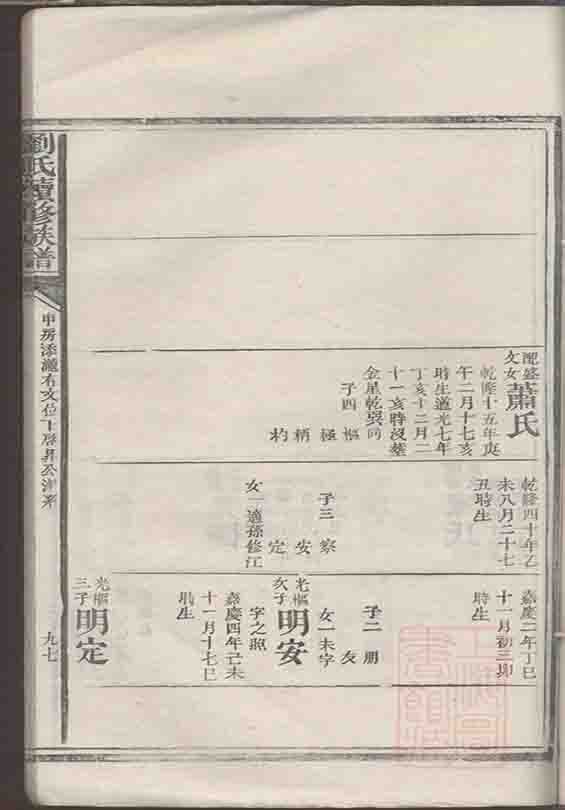 配盛
文女
蕭氏
乾隆十五年庚
午二月十七亥
時生道光七年
丁亥十二月二
十一亥時沒塟
金星乾巽向
子四
樞
極
柄
杓
乾隆四十年乙
未八月二十七
丑時生
子三
察
安
定
女一適孫修江
嘉慶二年丁巳
十一月初三卯
時生
子二
朋
友
女一未字
光樞
次子
明安
字之照
嘉慶四年己未
十一月十七巳
時生
光樞
三子
明定
劉氏續修族譜
九七